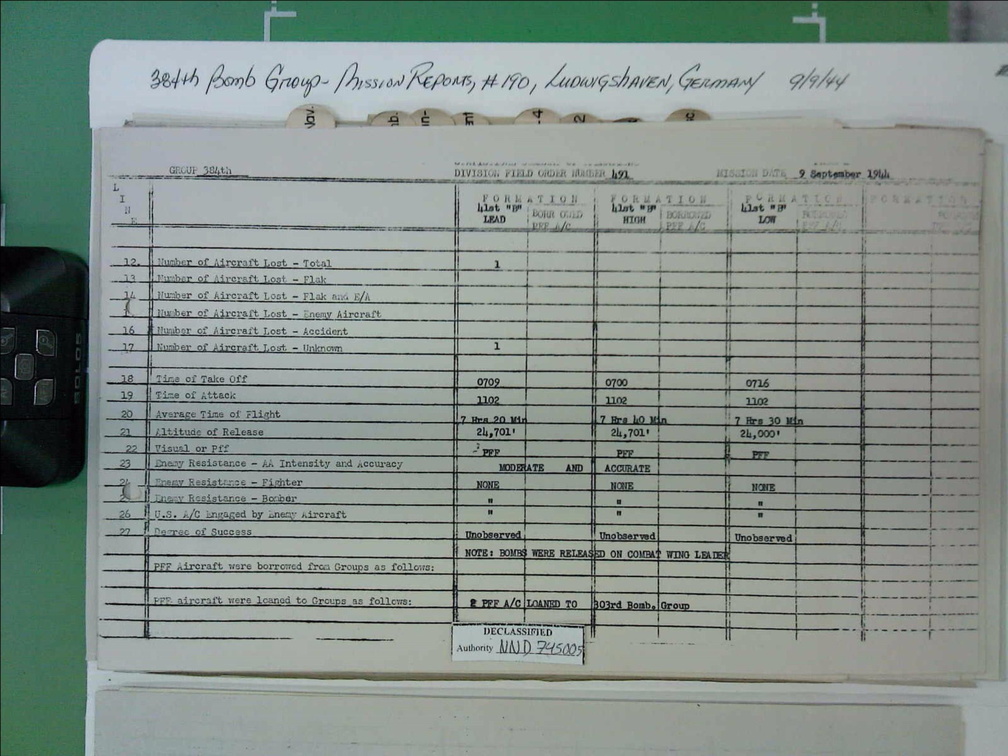 384th Bomb Group - Mission Reports, #190, Ludwigshaven, Germany 9/9/44
Nov.
GROUP 384th DIVISION FIELD ORDER NUMBER 491 MISSION DATE 9 September 1944
L I N E
FORMATION FORMATION FORMATION FORMATION
41st "B" LEAD BORROWED PFF A/C 41st "B" HIGH BORROWED PFF A/C 41st "B" LOW
12. Number of Aircraft Lost - Total 1
13 Number of Aircraft Lost - Flak
14 Number of Aircraft Lost - Flak and E/A
Number of Aircraft Lost - Enemy Aircraft
16 Number of Aircraft Lost - Accident
17 Number of Aircraft Lost - Unknown 1
18 Time of Take Off 0709 0700 0716
19 Time of Attack 1102 1102 1102
20 Average Time of Flight 7 Hrs 20 Min 7 Hrs 40 Min 7 Hrs 30 Min
21 Altitude of Release 24,701' 24,701' 24,000'
22 Visual or Pff PFF PFF PFF
23 Enemy Resistance - AA Intensity and Accuracy MODERATE AND ACCURATE
Enemy Resistance - Fighter NONE NONE NONE
Enemy Resistance - Bomber " " "
26 U.S. A/C Engaged by Enemy Aircraft " " "
27 Degree of Success Unobserved Unobserved Unobserved
NOTE: BOMBS WERE RELEASED ON COMBAT WING LEADER
PFF Aircraft were borrowed from Groups as follows:
PFF aircraft were loaned to Groups as follows: 2 PFF A/C LOANED TO 303rd Bomb. Group
DECLASSIFIED
Authority NND 745005
SOLOS